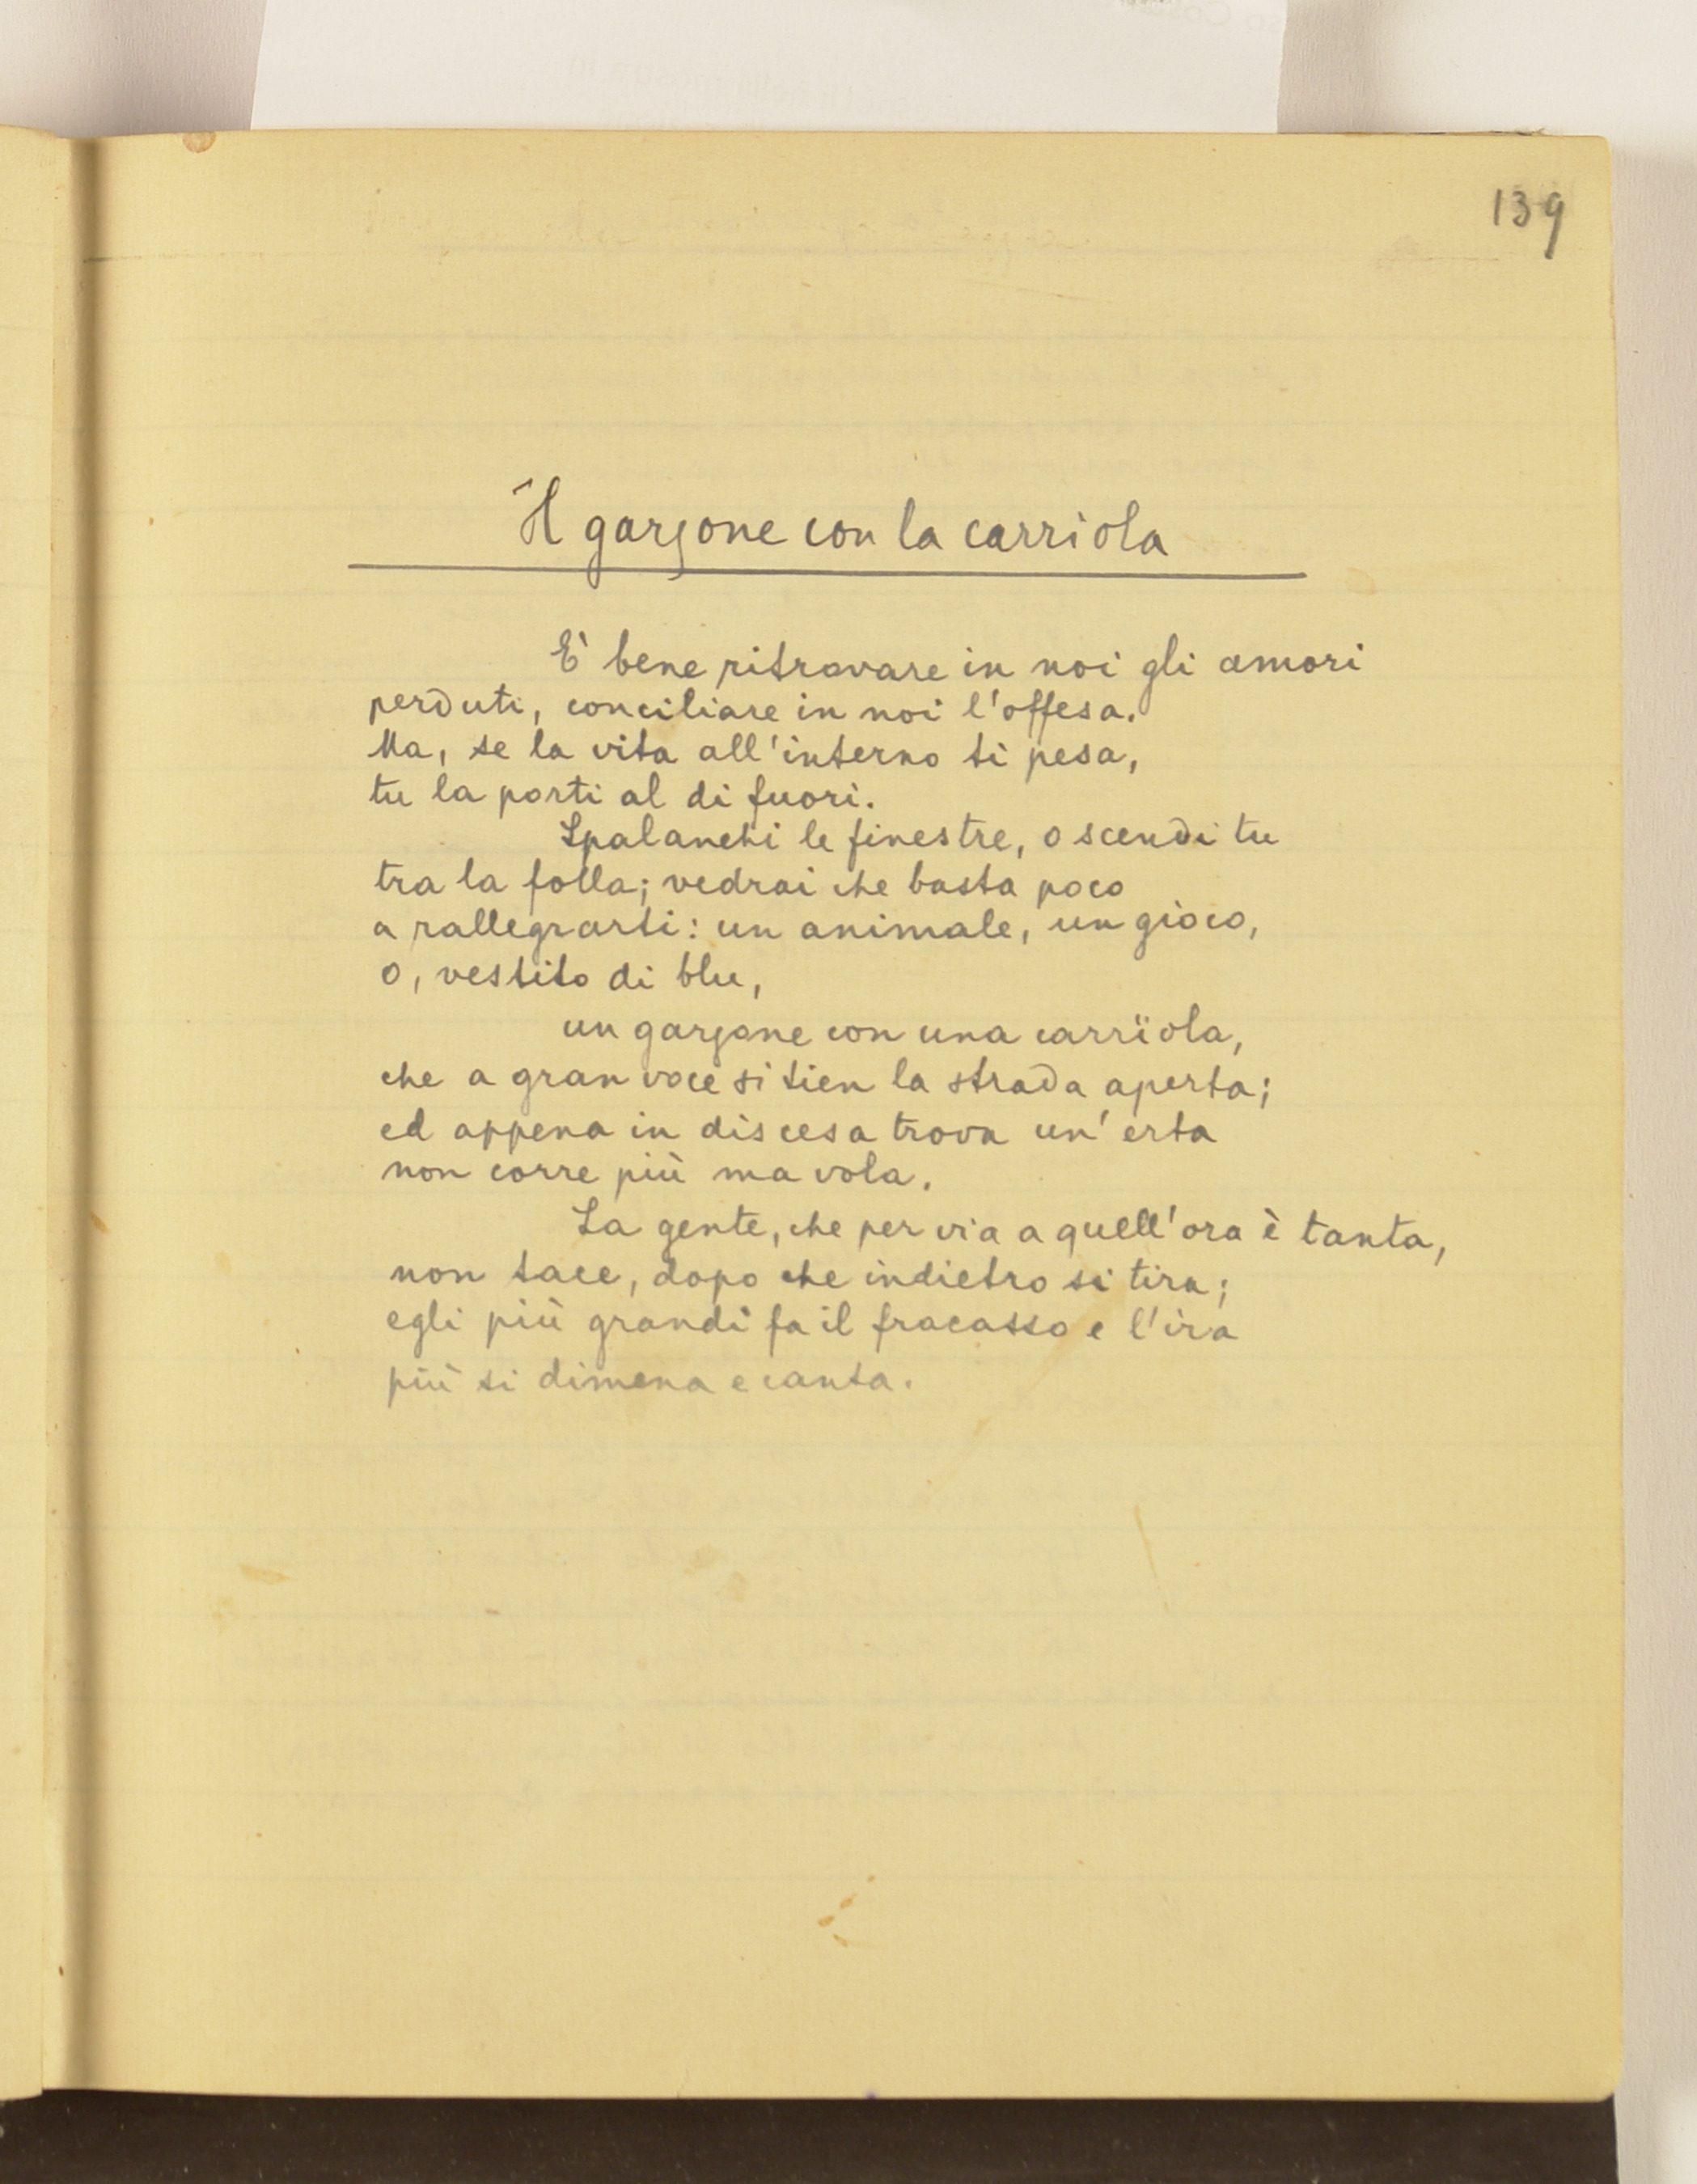 139
Il garzone con la carriola
E' bene ritrovare in noi gli amori
perduti, conciliare in noi l'offesa.
Ma, se la vita all'interno ti pesa,
tu la porti al di fuori.
Spalanchi le finestre, o scendi tu
tra la folla; vedrai che basta poco
a rallegrarti: un animale, un gioco,
o, vestito di blu,
un garzone con una carrïola,
che a gran voce si tien la strada aperta;
ed appena in discesa trova un'erta
non corre più ma vola.
La gente, che per via a quell'ora è tanta,
non tace, dopo che indietro si tira;
egli più grandi fa il fracasso e l'ira
più si dimena e canta.